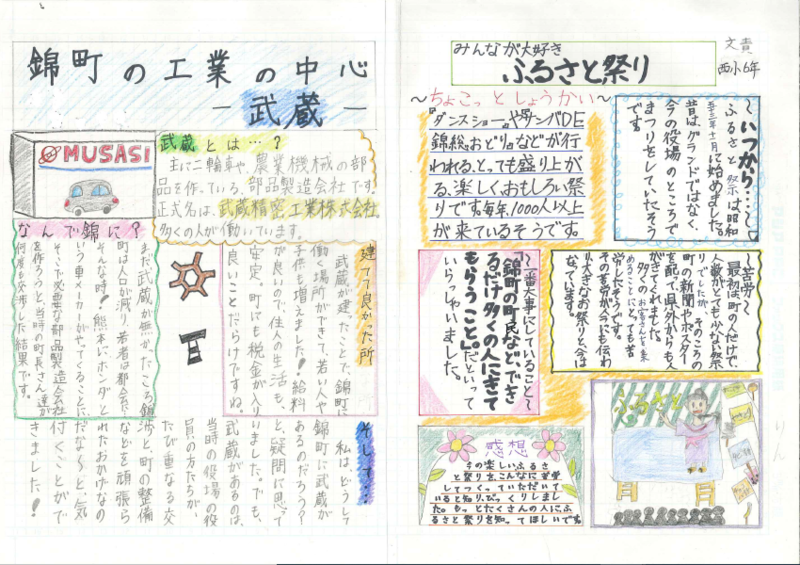 錦町の工業の中心
―武蔵―
MUSASI
武蔵とは…？
主に二輪車や、農業機械の部
品を作っている、部品製造会社です。
正式名は、武蔵精密工業株式会社。
多くの人が働いています。
なんで錦に？
まだ武蔵が無かったころ錦
町は人口が減り、若者は都会に
そんな時！熊本にホンダと
いう車メーカーがやってくることに
そこで必要な部品製造会社
を作ろうと、当時の町長さん達が
何度も交渉した結果です。
建てて良かった所
武蔵が建ったことで、錦町に
働く場所ができて、若い人や
子供も増えました！給料
が良いので、住人の生活も、
安定。町にも税金が入り
良いことだらけですね。
そして…
私は、どうして
錦町に武蔵が
あるのだろう？
と、疑問に思って
いました。でも、
武蔵があるのは、
当時の役場の役
員の方たちが、
たび重なる交
渉と町の整備
などを頑張ら
れたおかげなの
だな〜と、気
付くことがで
きました！
みんなが大好き
ふるさと祭り
文責
西小6年
〜ちょこっとしょうかい〜
『ダンスショー』や『サンバDE
錦総おどり』などが行
われる、とっても盛り上が
る、楽しく、おもしろい祭
りです。毎年、1000人以上
が来ているそうです。
〜いつから…〜
ふるさと祭は昭和
五十三年十一月に始めました。
昔は、グランドではなく、
今の役場のところで
まつりをしていたそう
です。
〜苦労〜
最初は、町の人だけで、
人数がとても少ない祭
りでしたが、そのころの
町の新聞やポスター
を配って、県外からも人
がきてくれました。
多くのお客さんを来
あることにとっても苦
労したそうです。
その苦労が今にも伝わ
り大きなお祭りと、今は
なっています。
〜一番大事にしていること〜
「錦町の町民など、でき
るだけ多くの人にきて
もらうこと。」だといって
いらっしゃいました。
感想
今の楽しいふるさ
と祭りを、こんなに苦労
してつくっていただいて
いると知り、びっくりしまし
た。もっとたくさんの人にふ
るさと祭りを知ってほしいです。
ふるさと